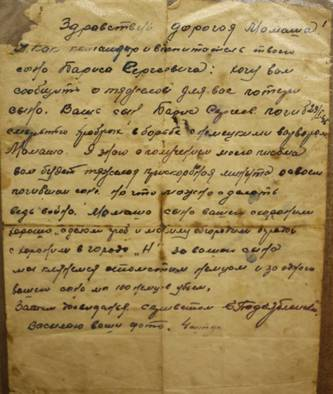 Здравствуй дорогая Мамаша!
Я как командир и воспитатель твоего
сына Бариса Сергеевича: хочу вам
сообщить о тяжолой для вас потери
сына. Ваш сын Барис Сергеев погиб
смертью храбрых в борьбе с немецкими варварами
Мамаша. Я знаю о получении моего писма
вам будет тяжолая прискорбная минута о своем
погибшем сыне. Но что можно сделать
ведь война. Мамаша сына вашего схоронили
хорошо, сделали гроб и могилу
схоронен в городе "Н" за вашего сына
мы немцам отомстим и за одного
вашего сына мы 100 немцев убьем.
Затем досвидания с приветом
Высылаю ваши фото.